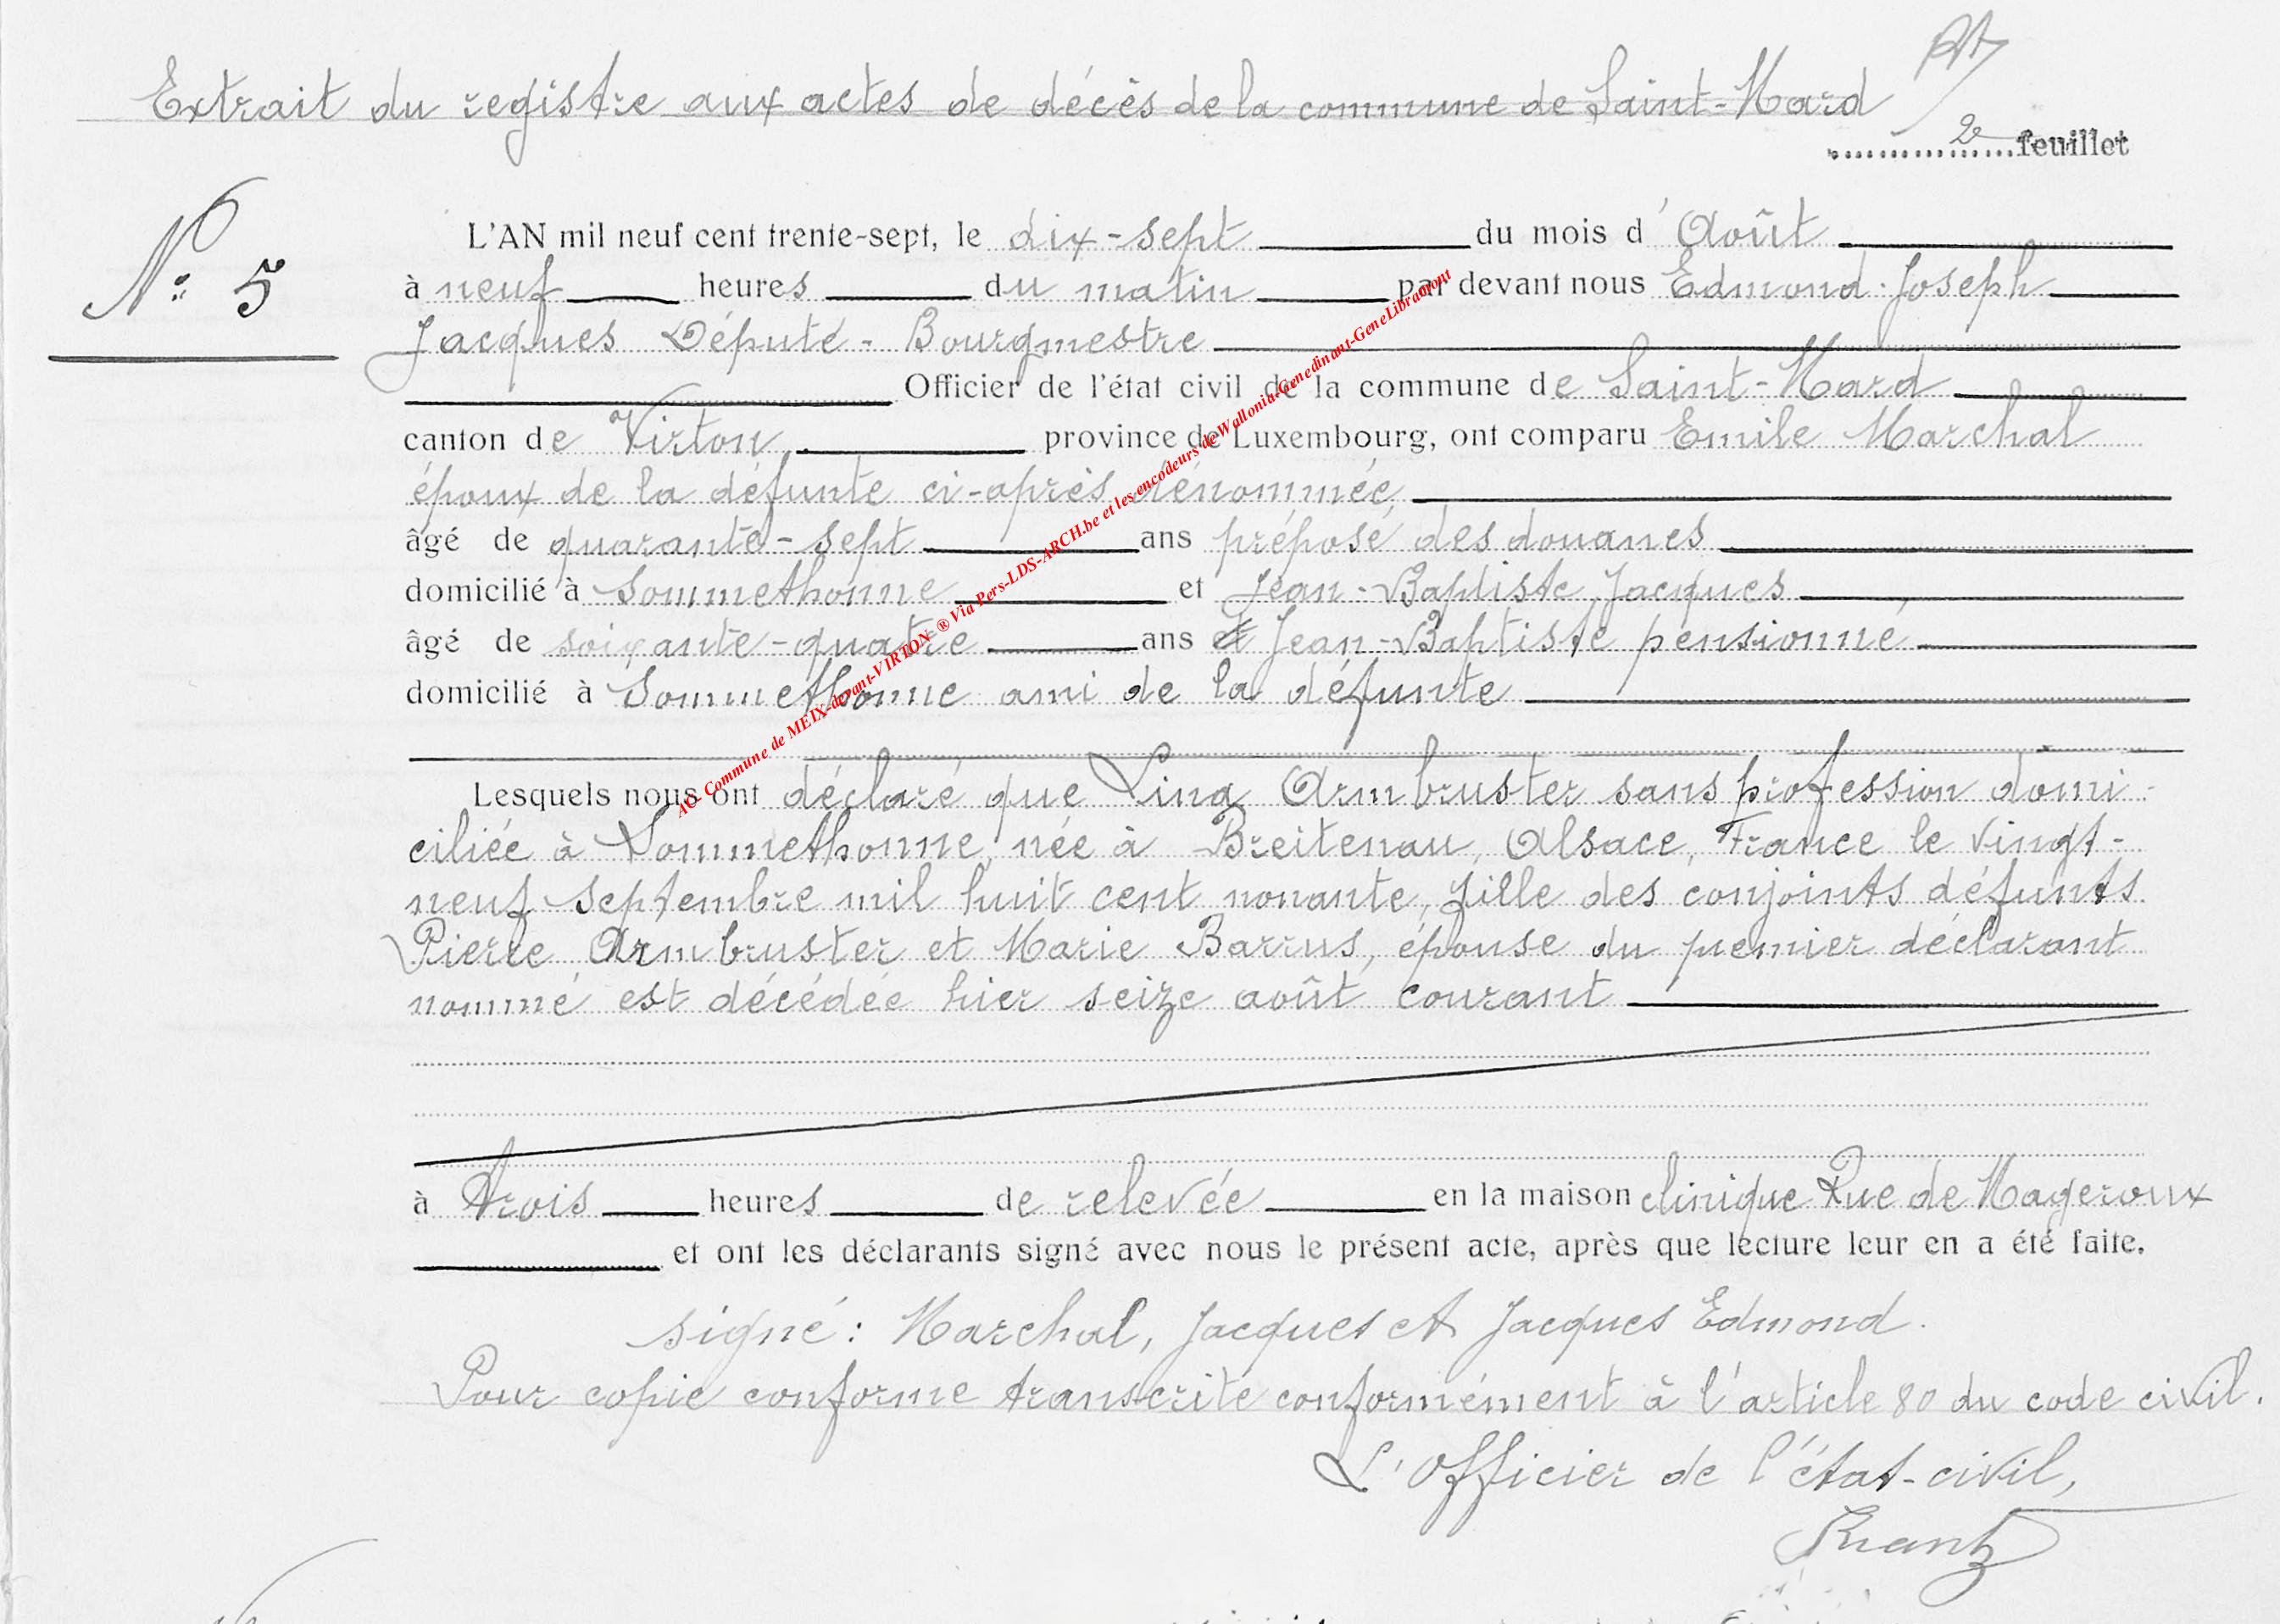 Extrait du registre aux actes de décès de la commune de Saint-Mard
2e feuillet
N° 5
L'AN mil neuf cent trente-sept, le dix-sept du mois d'Août
à neuf heures du matin par devant nous Edmond-Joseph
Jacques Député-Bourgmestre
Officier de l'état civil de la commune de Saint-Mard
canton de Virton province de Luxembourg, ont comparu Emile Marchal
époux de la défunte ci-après dénommée,
âgé de quarante-sept ans préposé des douanes
domicilié à Sommethonne et Jean-Baptiste Jacques
âgé de soixante-quatre ans et Jean-Baptiste pensionné
domicilié à Sommethonne ami de la défunte
Lesquels nous ont déclaré que Lina Armbruster sans profession domi-
ciliée à Sommethonne, née à Breitenau, Alsace, France le vingt-
neuf septembre mil huit cent nonante, fille des conjoints défunts
Pierre Armbruster et Marie Barrus, épouse du premier déclarant
nommé est décédée hier seize août courant
à trois heures de relevée en la maison clinique Rue de Mageroux
et ont les déclarants signé avec nous le présent acte, après que lecture leur en a été faite.
signé: Marchal, Jacques et Jacques Edmond.
Pour copie conforme transcrite conformément à l'article 80 du code civil.
L'Officier de l'état-civil,
AC- Commune de MEIX-devant-VIRTON ® Via Pers-LDS-ARCH.be et les encodeurs de Wallonia-Genedinant-GeneLibramont